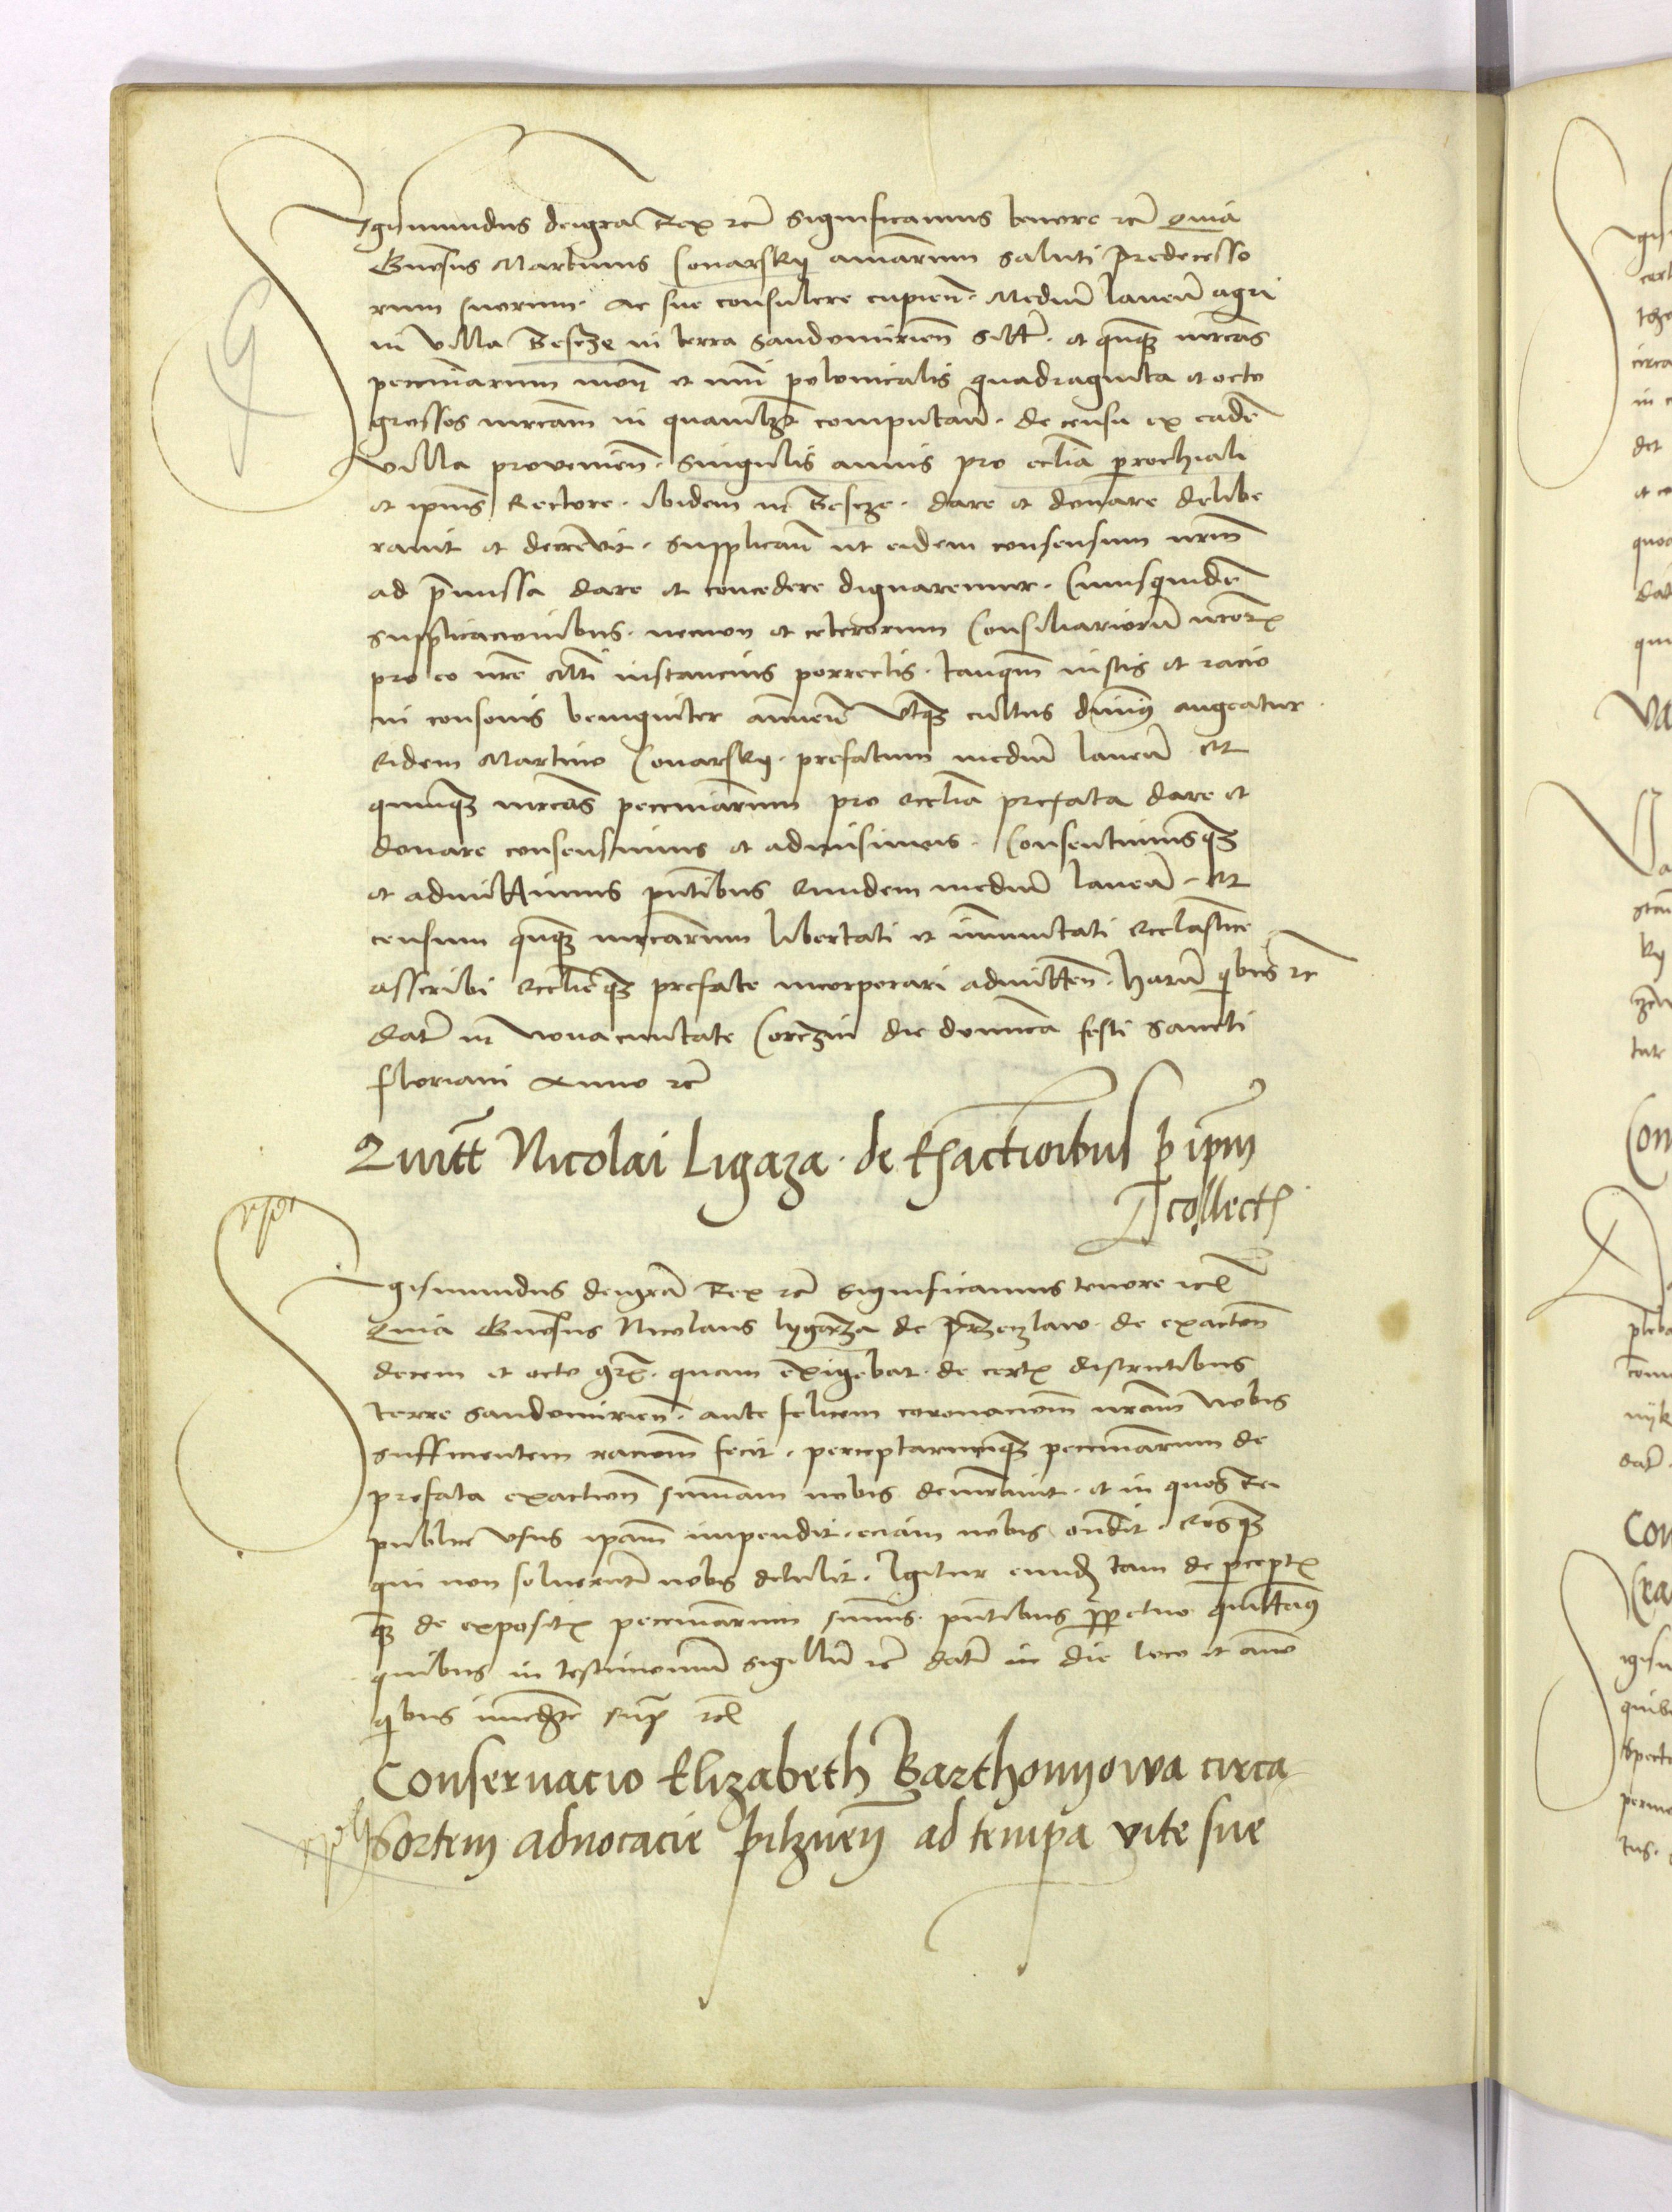 Sigismundus deigra Rex etc Significamus tenore etc Quia
Gnosus Martinus Conarskij animarum saluti Predecesso
rum suorum. ac sue consulere cupien. Medium laneum agri
in villa Besczę in terra Sandomirien Sitt. et quinqz mrcas
pecuniarum monet et nuni polonicalis quadraginta et octo
grossos mrcam in quamlzet computan. de censu ex eade
villa provenien. Singulis annis pro ecclia parochiali
et ipius Rectore. ibidem in Besczę. dare et donare delibe
ravit et decrevit. Supplican ut eidem consensum nrm
ad premissa dare et concedere dignaremur. Cuiusquide
supplicacionibus. necnon et ceterorum Consiliariorum nrorum
pro eo nre Mti instancius porrectis. tanqm iustis et racio
ni consonis benigniter annuen Utqz cultus divinus augeatur.
Eidem Martino Conarskij. prefatum medium laneum et
quinqz mrcas pecuniarum pro ecclia prefata dare et
donare consensimus et admisimus. Consentimusqz
et admittimus pntibus Eundem medium laneum. et
censum quinqz mrcarum libertati et immunitati eccleastice
asscribi ecclieqz prefate incorporari admitten. harum qbus etc
Dat in Nova civitate Corczin die dominica festi Sancti
Floriani Anno etc
Quitt Nicolai Ligaza. de Exactionibus p ipm
collect
Sigismundus deigra Rex etc Significamus tenore etc
Quia Gnosus Nicolaus lygąza de Przeczlaw. de exaction
decem et octo gr. quam exigebat. de cert districtibus
terre Sandomirien. ante felicem coronacionem nram Nobis
sufficientem racionem fecit. perceptarumqz pecuniarum de
prefata exaction summam nobis denumeravit. et in quos Rei
publice usus ipam impendit. eciam nobis ondit. Eosqz
qui non solverunt nobis detulit. Igitur eundz tam de percept
qz de exposit pecuniarum summis. pntibus ppetuo quittamus
quibus in testimonium Sigillum etc dat in die loco et anno
qbus immediate supra etc
Conservacio Elizabeth Barthomyowa circa
Sortem advocacie pilznen ad tempa vite sue